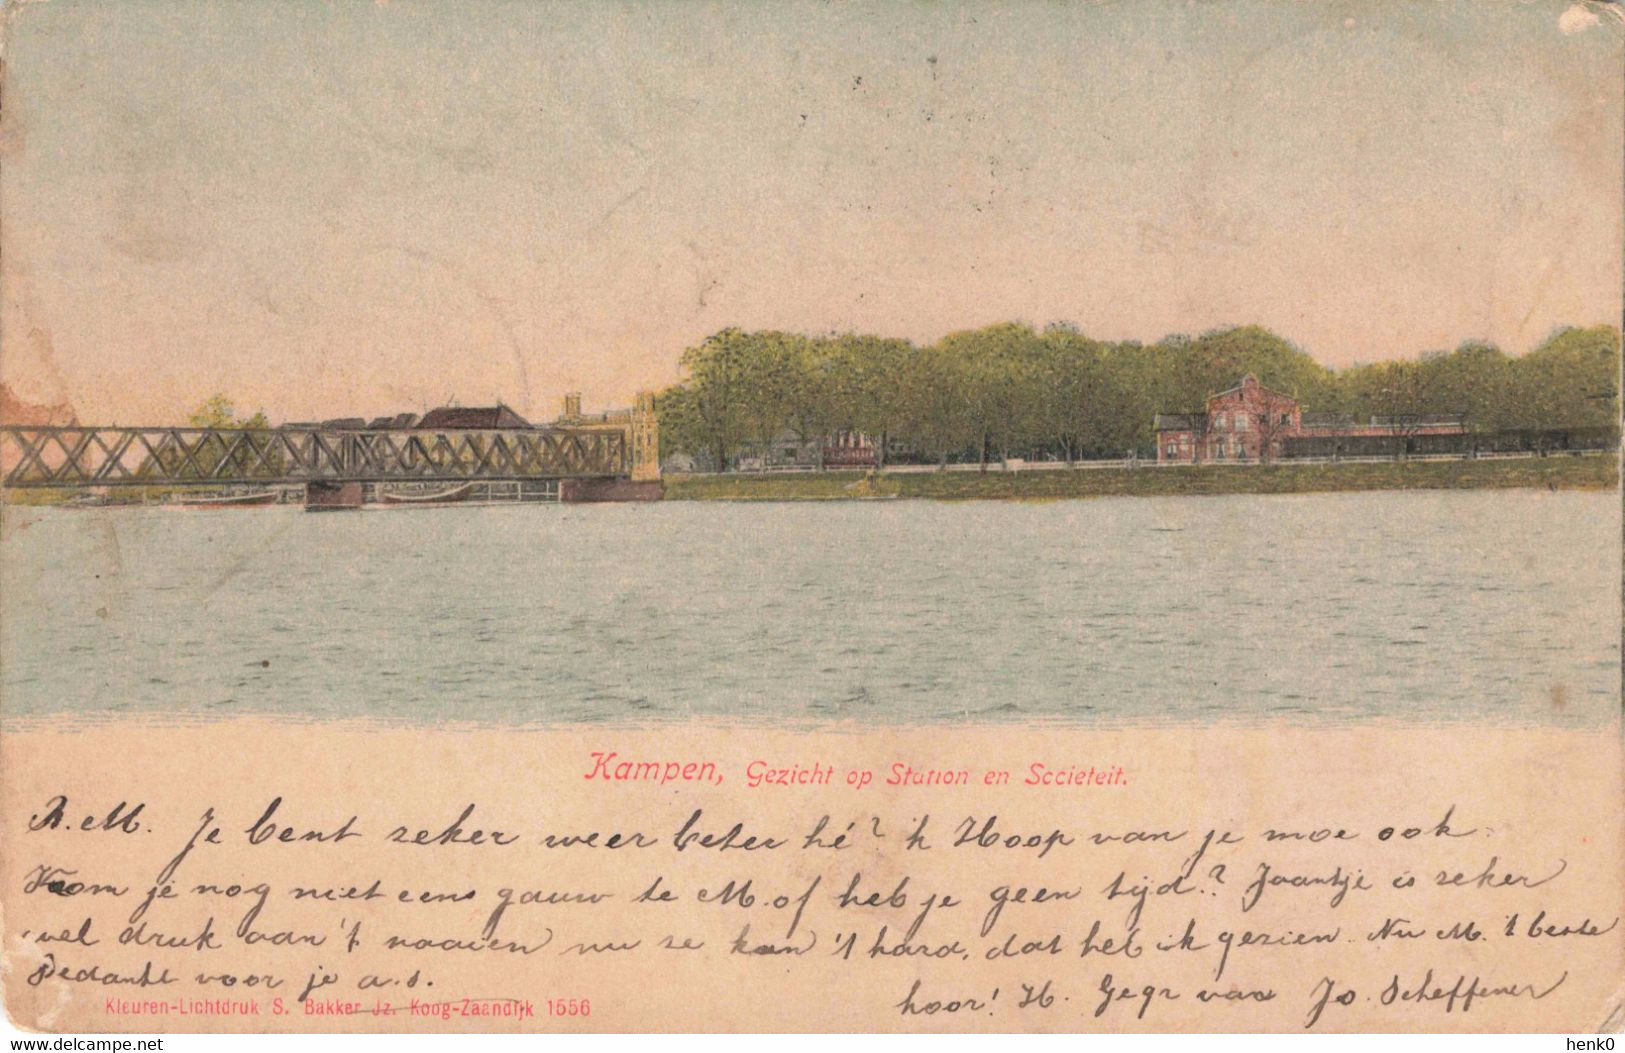 Kampen, Gezicht op Station en Societeit.
B. M. Je bent zeker weer beter hé? 'k Hoop van je moe ook.
Kom je nog niet eens gauw te M. of heb je geen tijd? Jaantje is zeker
wel druk aan 't naaien nu ze kan 't hard, dat heb ik gezien. Nu M. 't beste
Bedankt voor je a.s.
hoor! H. Gegr van Jo. Scheffener
Kleuren-Lichtdruk S. Bakker Jz. Koog-Zaandijk 1556
henk0
www.delcampe.net